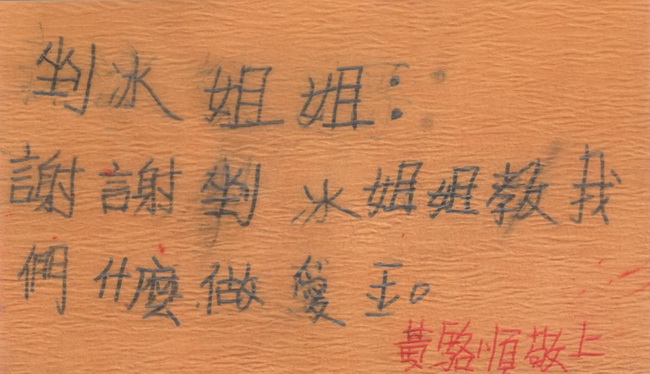 剉冰姐姐:
謝謝剉冰姐姐教我
們什麼做愛玉。
黃駱順敬上